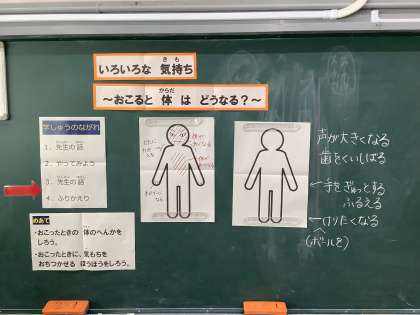 いろいろな 気持ち
きも
～おこると 体 は どうなる？～
からだ
学しゅうのながれ
1．先生の話
2．やってみよう
3．先生の話
4．ふりかえり
めあて
・おこったときの 体のへんかを
しろう。
・おこったときに、気もちを
おちつかせる ほうほうをしろう。
声が大きくなる
歯をくいしばる
←手をぎゅっとする
ふるえる
←けりたくなる
(ボールを)